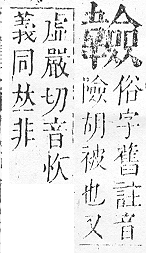 俗字舊註音
險胡被也又
虛嚴切音忺
義同𠀤非